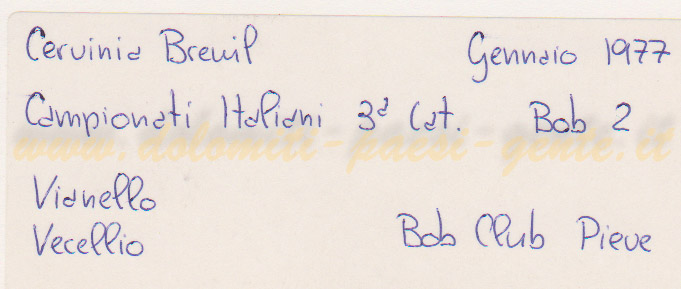 Cervinia Breuil Gennaio 1977
Campionati Italiani 3ª Cat. Bob 2
www.dolomiti-paesi-gente.it
Vianello
Vecellio Bob Club Pieve